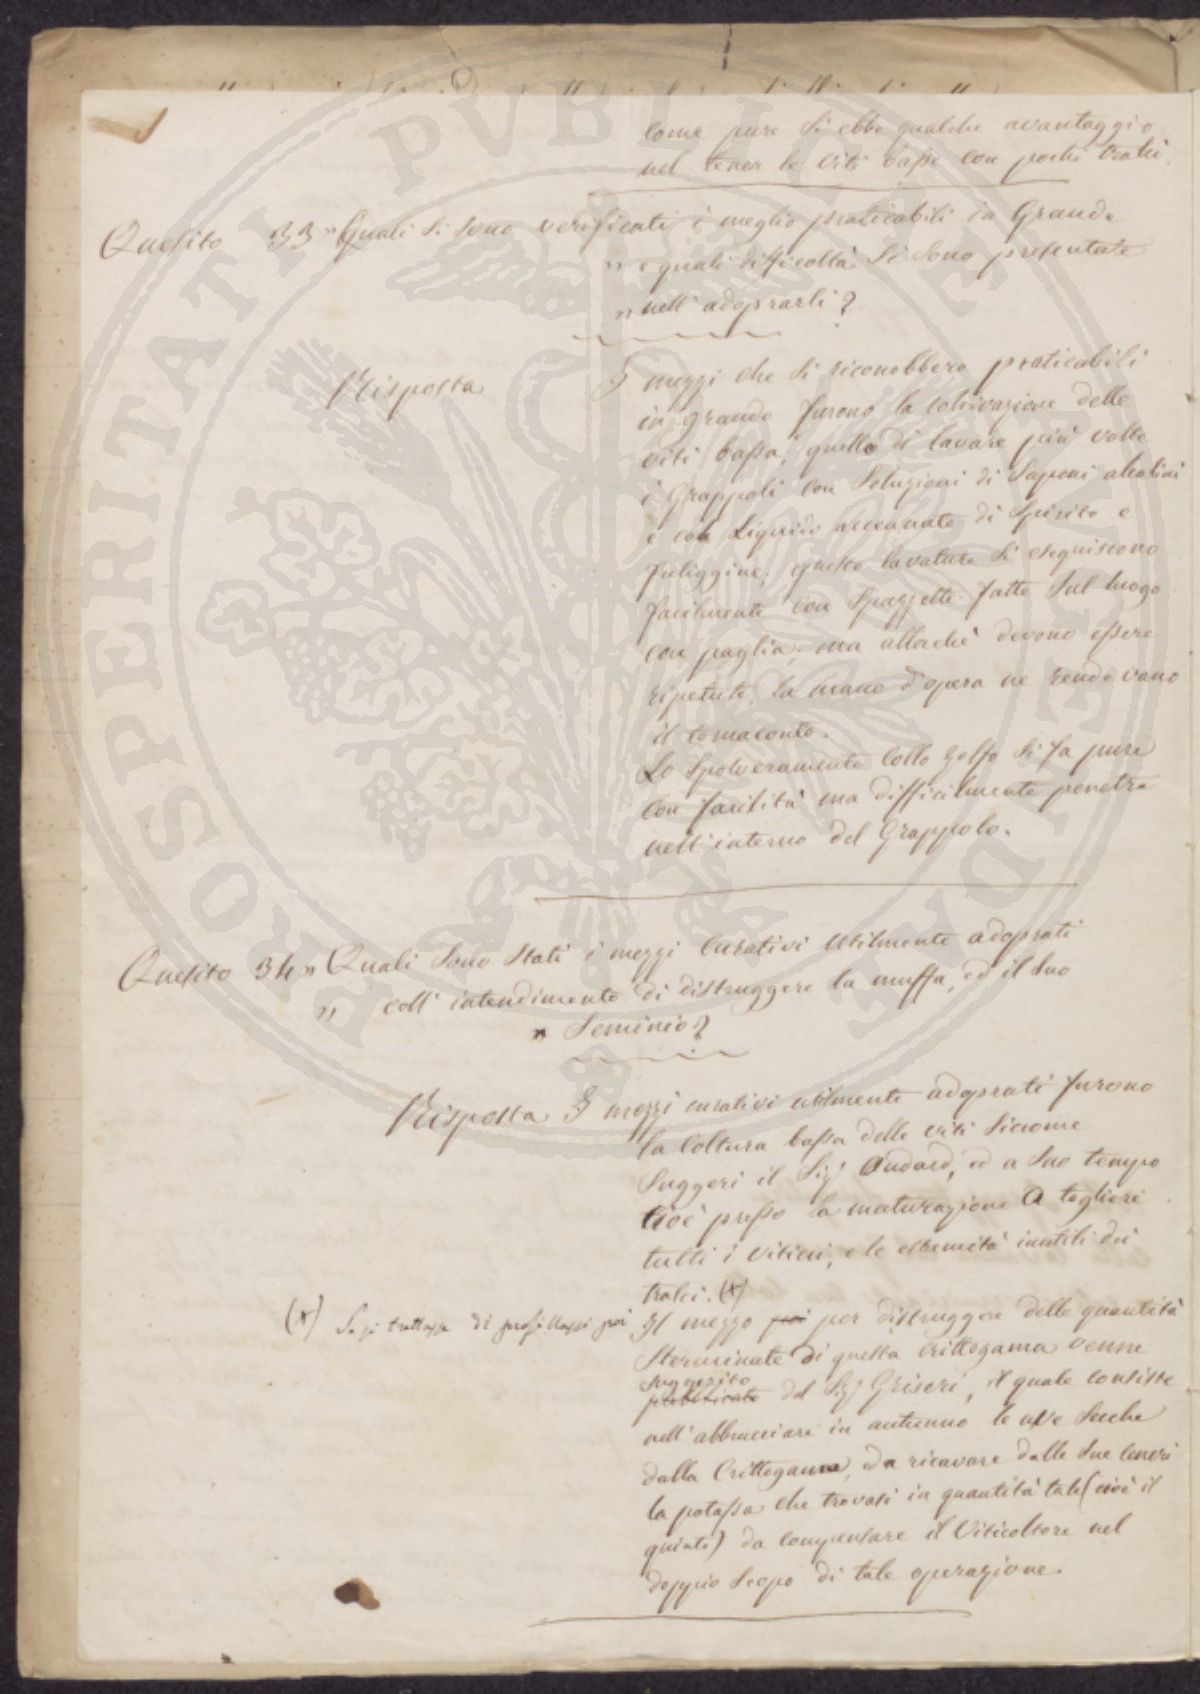 come pure si ebbe qualche avantaggio
nel tener le viti basse con pochi tralci.
Quesito 33 " Quali si sono verificati i meglio praticabili in Grande
" e quali difficoltà si sono presentate
" nell' adoprarli?
Risposta I mezzi che si riconobbero praticabili
in grande furono la coltivazione delle
viti bassa, quello di lavare più volte
i Grappoli con Soluzioni di Saponi alcalini
e col Liquido accennato di Spirito e
fuliggine; queste lavature si eseguiscono
facilmente con Spazzette fatte Sul luogo
con paglia, ma allorchè devono essere
ripetute, la mano d'opera ne rende vano
il tornaconto.
Lo Spolveramento collo Zolfo si fa pure
con facilità ma difficilmente penetra
nell' interno del Grappolo.
Quesito 34 " Quali Sono Stati i mezzi Curativi Utilmente adoprati
" coll' intendimento di distruggere la muffa, ed il Suo
" Seminio?
Risposta I mezzi curativi utilmente adoprati furono
la Coltura bassa delle viti Siccome
Suggerì il Sigr Audard, ed a Suo tempo
Cioè presso la maturazione a togliere
tutti i viticci, e le estremità inutili dei
tralci. (x)
(x) Se si trattasse di profillassi poi
Il mezzo poi per distruggere delle quantità
Sterminate di questa Crittogama venne
suggerito
pubblicato dal Sigr Griseri, il quale consiste
nell' abbrucciare in autunno le uve Secche
dalla Crittogama, ed a ricavare dalle Sue ceneri
la potassa che trovasi in quantità tale (cioè il
quinto) da compensare il Viticoltore nel
doppio Scopo di tale operazione.
PROSPERITATI PVBLICAE AVGENDAE